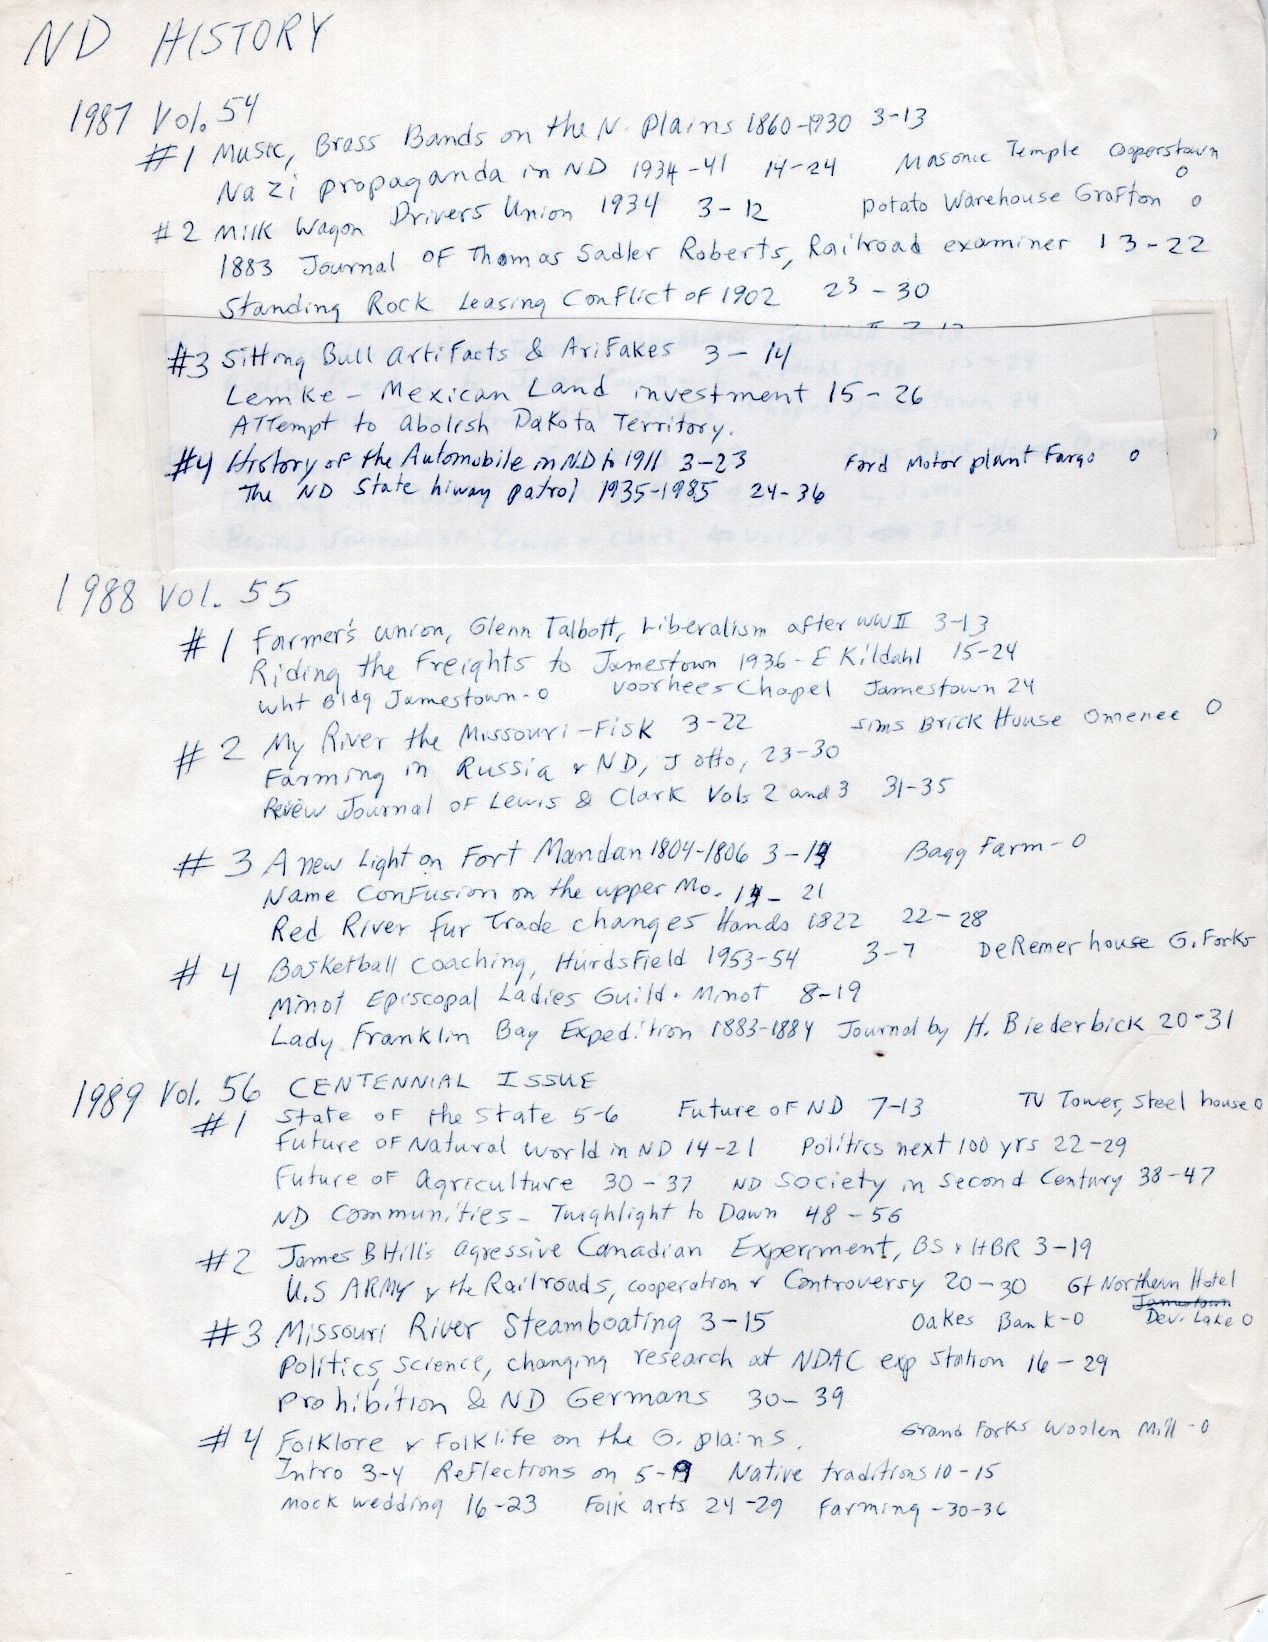 ND HISTORY
1987 Vol. 54
#1 Music, Brass Bands on the N. Plains 1860-1930 3-13
Nazi propaganda in ND 1934-41 14-24 Masonic Temple Cooperstown 0
#2 Milk Wagon Drivers Union 1934 3-12 potato Warehouse Grafton 0
1883 Journal of Thomas Sadler Roberts, Railroad examiner 13-22
Standing Rock Leasing Conflict of 1902 23-30
#3 Sitting Bull Artifacts & Arifakes 3-14
Lemke - Mexican Land investment 15-26
Attempt to abolish Dakota Territory.
#4 History of the Automobile in ND to 1911 3-23 Ford Motor plant Fargo 0
The ND State hiway patrol 1935-1985 24-36
1988 Vol. 55
#1 Farmer's union, Glenn Talbott, Liberalism after WWII 3-13
Riding the Freights to Jamestown 1936 - E Kildahl 15-24
Wht Bldg Jamestown-0 Voorhees Chapel Jamestown 24
#2 My River the Missouri-Fisk 3-22 Sims Brick House Omenee 0
Farming in Russia & ND, J Otto, 23-30
Review Journal of Lewis & Clark Vols 2 and 3 31-35
#3 A new Light on Fort Mandan 1804-1806 3-14 Bagg Farm-0
Name Confusion on the upper Mo. 14-21
Red River fur Trade changes Hands 1822 22-28
#4 Basketball Coaching, Hurdsfield 1953-54 3-7 DeRemer house G. Forks
Minot Episcopal Ladies Guild. Minot 8-19
Lady Franklin Bay Expedition 1883-1884 Journal by H. Biederbick 20-31
1989 Vol. 56 CENTENNIAL ISSUE
#1 State of the State 5-6 Future of ND 7-13 TV Tower, Steel house 0
Future of Natural World in ND 14-21 Politics next 100 yrs 22-29
Future of Agriculture 30-37 ND Society in Second Century 38-47
ND Communities - Twighlight to Dawn 48-56
#2 James B Hill's agressive Canadian Experiment, BS & HBR 3-19
U.S ARMY & the Railroads, cooperation & Controversy 20-30 Gt Northern Hotel
Jamestown
#3 Missouri River Steamboating 3-15 Oakes Bank-0 Dev. Lake 0
Politics, Science, changing research at NDAC exp Station 16-29
Prohibition & ND Germans 30-39
#4 Folklore & Folklife on the G. plains. Grand Forks Woolen Mill-0
Intro 3-4 Reflections on 5-9 Native traditions 10-15
Mock wedding 16-23 Folk arts 24-29 Farming-30-36